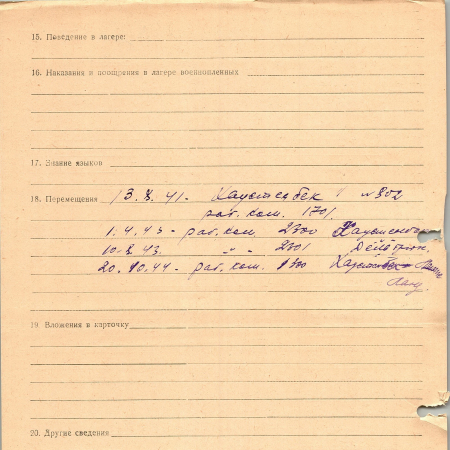 15. Поведение в лагере:
16. Наказания и поощрения в лагере военнопленных
17. Знание языков
18. Перемещения 13.8.41 - Хаммербек № 802
раб. ком. 1701.
1.4.43 - раб. ком. 2300
10.8.43. " - " 2301
20.10.44 - раб. ком. 1300
19. Вложения в карточку
20. Другие сведения